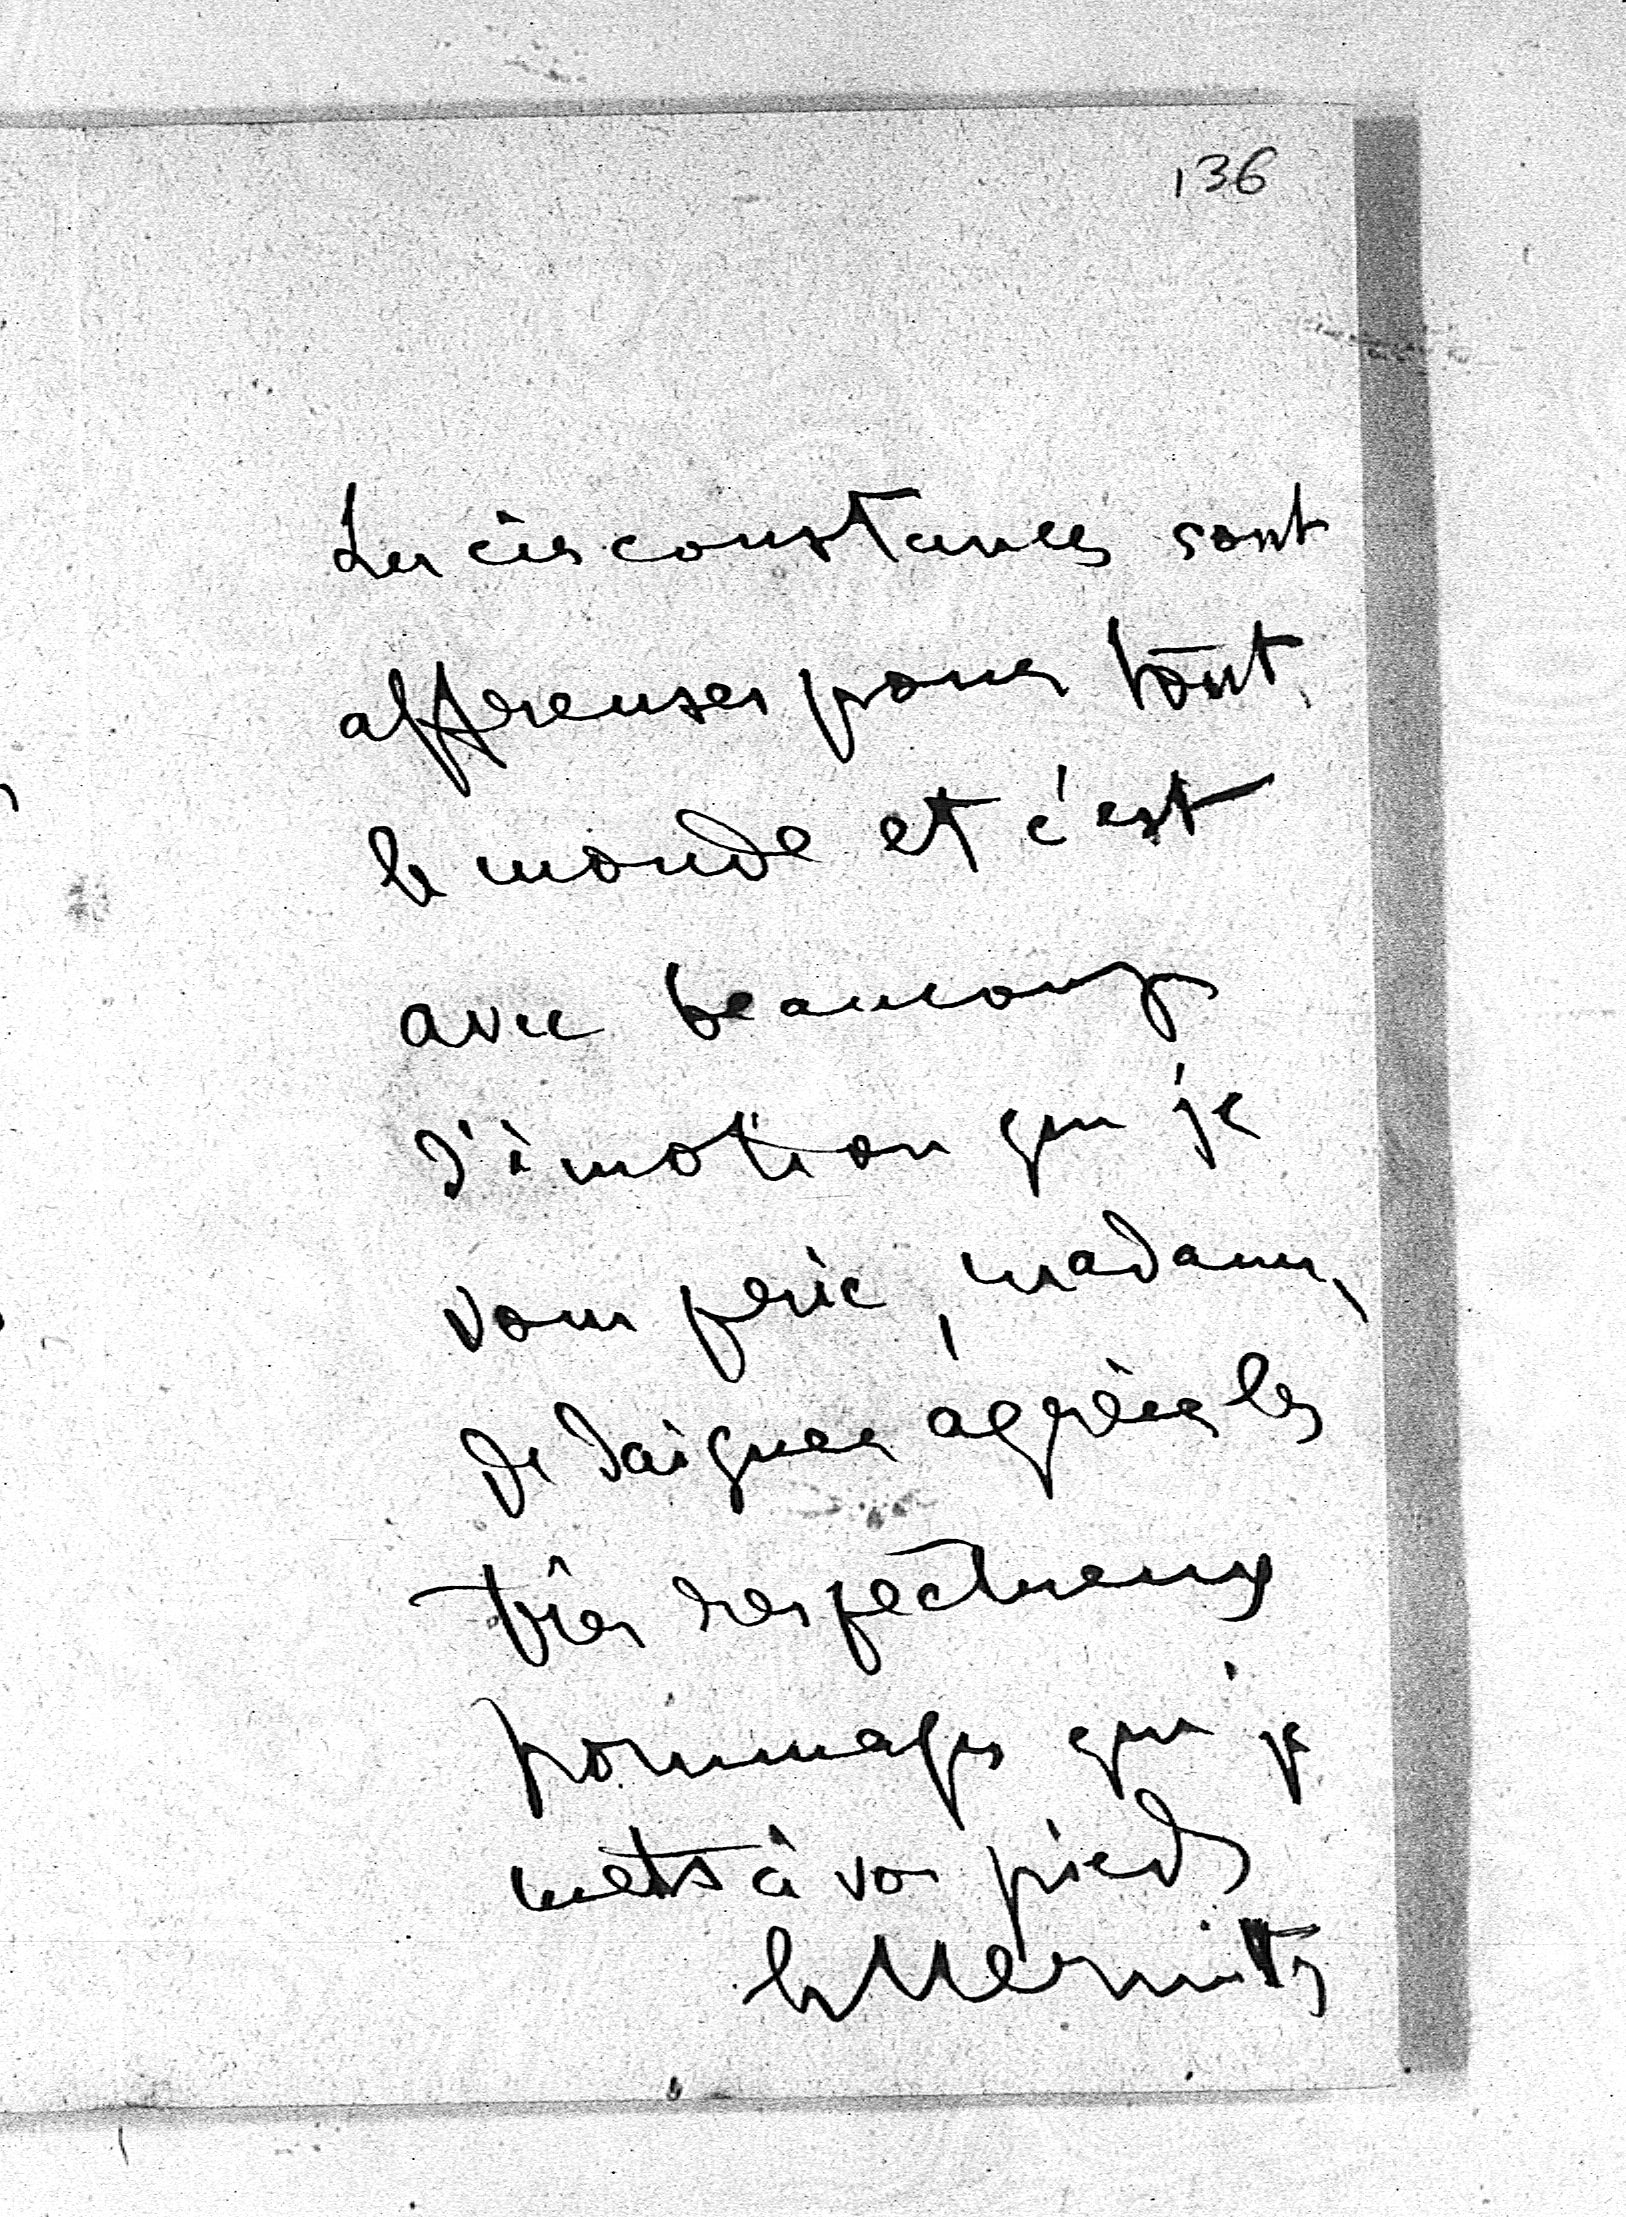 136
Les circonstances sont
affreuses pour tout
le monde et c'est
avec beaucoup
d'émotion que je
vous prie, madame,
de daigner agréer les
très respectueux
hommages que je
mets à vos pieds